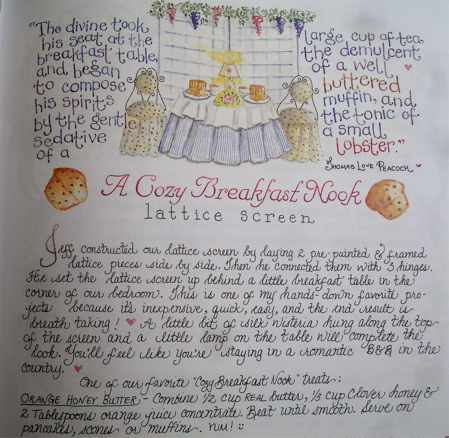 "The divine took
his seat at the
breakfast table,
and began
to compose
his spirits
by the gentle
sedative
of a
large cup of tea,
the demulcent
of a well
buttered
muffin, and
the tonic of
a small
lobster."
Thomas Love Peacock
A Cozy Breakfast Nook
lattice screen
Jeff constructed our lattice screen by laying 2 pre-painted & framed
lattice pieces side by side. Then he connected them with 3 hinges.
He set the lattice screen up behind a little breakfast table in the
corner of our bedroom. This is one of my hands-down favorite pro-
jects because it's inexpensive, quick, easy, and the end result is
breath taking! ♥ A little bit of silk wisteria hung along the top
of the screen and a little lamp on the table will complete the
look. You'll feel like you're staying in a romantic B&B in the
country. ♥
One of our favorite "Cozy Breakfast Nook" treats:
ORANGE HONEY BUTTER - Combine 1/2 cup REAL butter, 1/3 cup clover honey &
2 Tablespoons orange juice concentrate. Beat until smooth. Serve on
pancakes, scones or muffins. YUM!